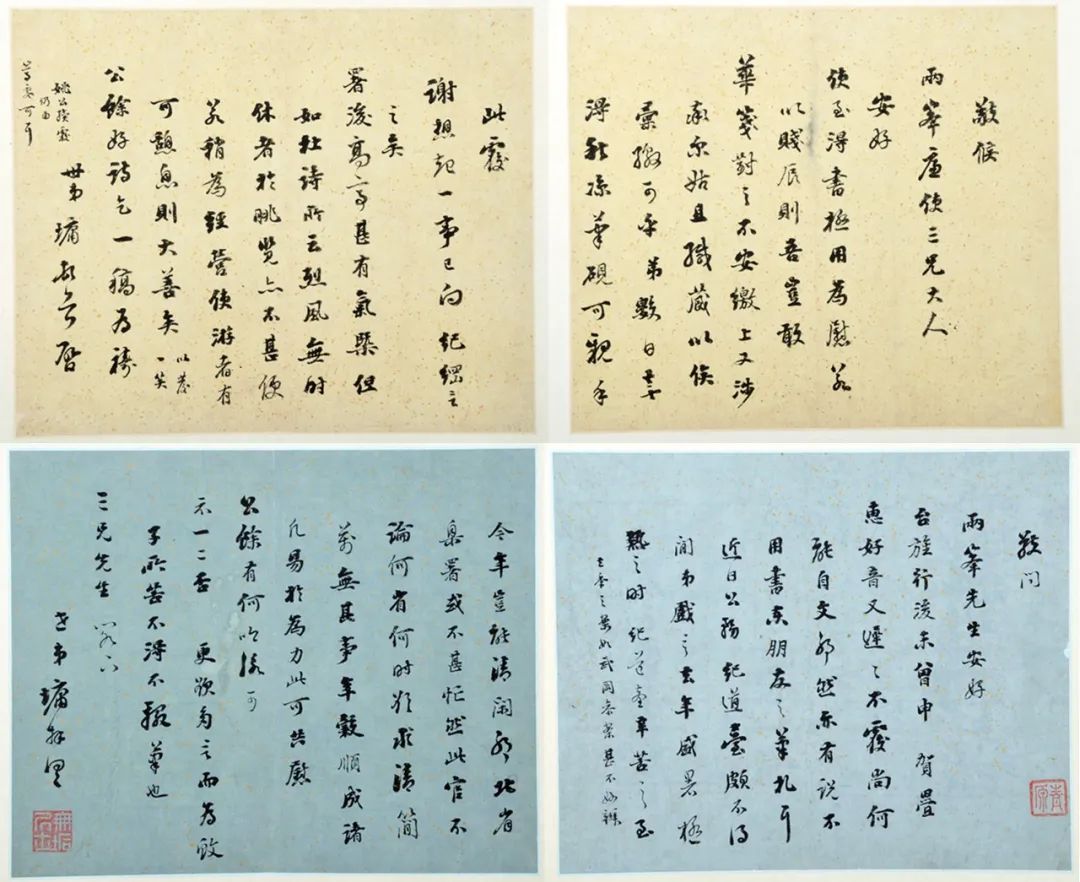 敬候
兩峯廉使三兄大人
安好
使至得書極用為慰若
以賤辰則吾豈敢
華箋對之不安繳上又涉
亦姑且緘藏以俟
繳可乎 弟數日
得 筆硯可親手
此覆
謝想起一事已向 紀綱言
之矣
署後高亭甚有氣槩但
如杜詩所云烈風無時
休者於眺覽亦不甚便
若稍為經營使游者有
可憩息則大善矣 以荅一笑
公餘好詩乞一稿為禱
世弟墉頓首啓
敬問
兩峯先生安好
台旌行後未曾申 賀疊
惠好音又遲之不覆尚何
能自文耶然亦有說不
用書來朋友之筆札耳
近日公務紀道臺頗不得
閒弟戲之去年盛暑極
熱之時紀道臺辛苦之至
今年豈能清閑耶北省
臬署或不甚忙然此官不
論何省何時欲求清簡
萬無其事年穀順成諸
凡易於為力此可共慰
公餘有何吟詠可
示一二否 更欲多言而為蚊
子所苦不得不輟筆也
三兄先生
世弟墉